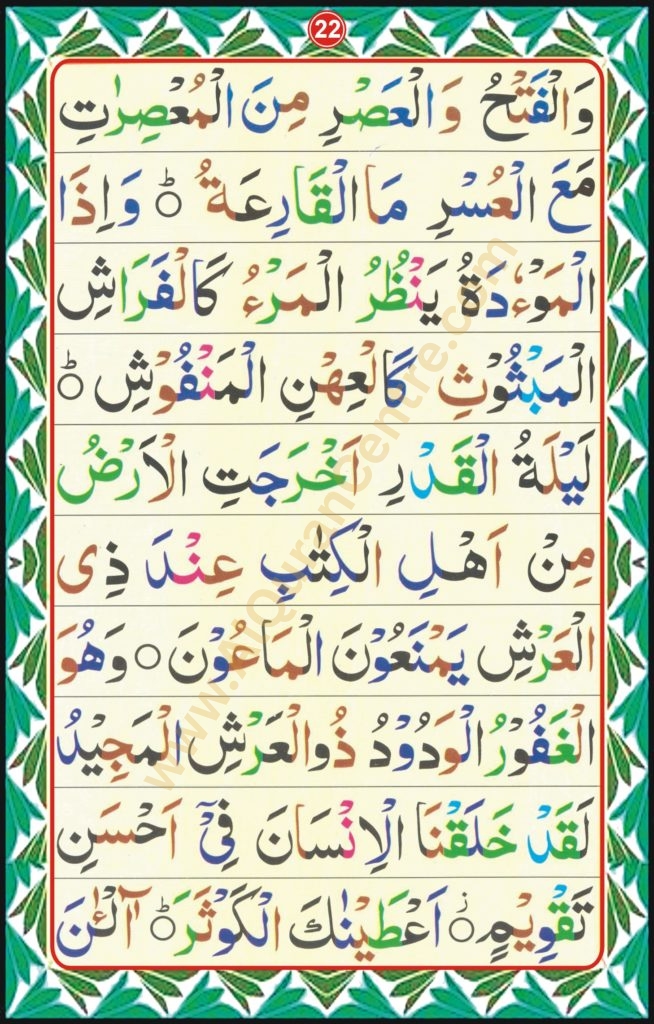 22
وَالْفَتْحُ وَالْعَصْرِ مِنَ الْمُعْصِرٰتِ
مَعَ الْعُسْرِ مَا الْقَارِعَةُ ؕ وَاِذَا
الْمَوْءٗدَةُ يَنْظُرُ الْمَرْءُ كَالْفَرَاشِ
الْمَبْثُوْثِ كَالْعِهْنِ الْمَنْفُوْشِ ؕ
لَيْلَةُ الْقَدْرِ اَخْرَجَتِ الْاَرْضُ
مِنْ اَهْلِ الْكِتٰبِ عِنْدَ ذِى
الْعَرْشِ يَمْنَعُوْنَ الْمَاعُوْنَ ○ وَهُوَ
الْغَفُوْرُ الْوَدُوْدُ ذُوالْعَرْشِ الْمَجِيْدُ
لَقَدْ خَلَقْنَا الْاِنْسَانَ فِىْٓ اَحْسَنِ
تَقْوِيْمٍ ○ؗ اَعْطَيْنٰكَ الْكَوْثَرَ ؕ آٰلْـٰٔنَ
www.AlQuranCentre.com